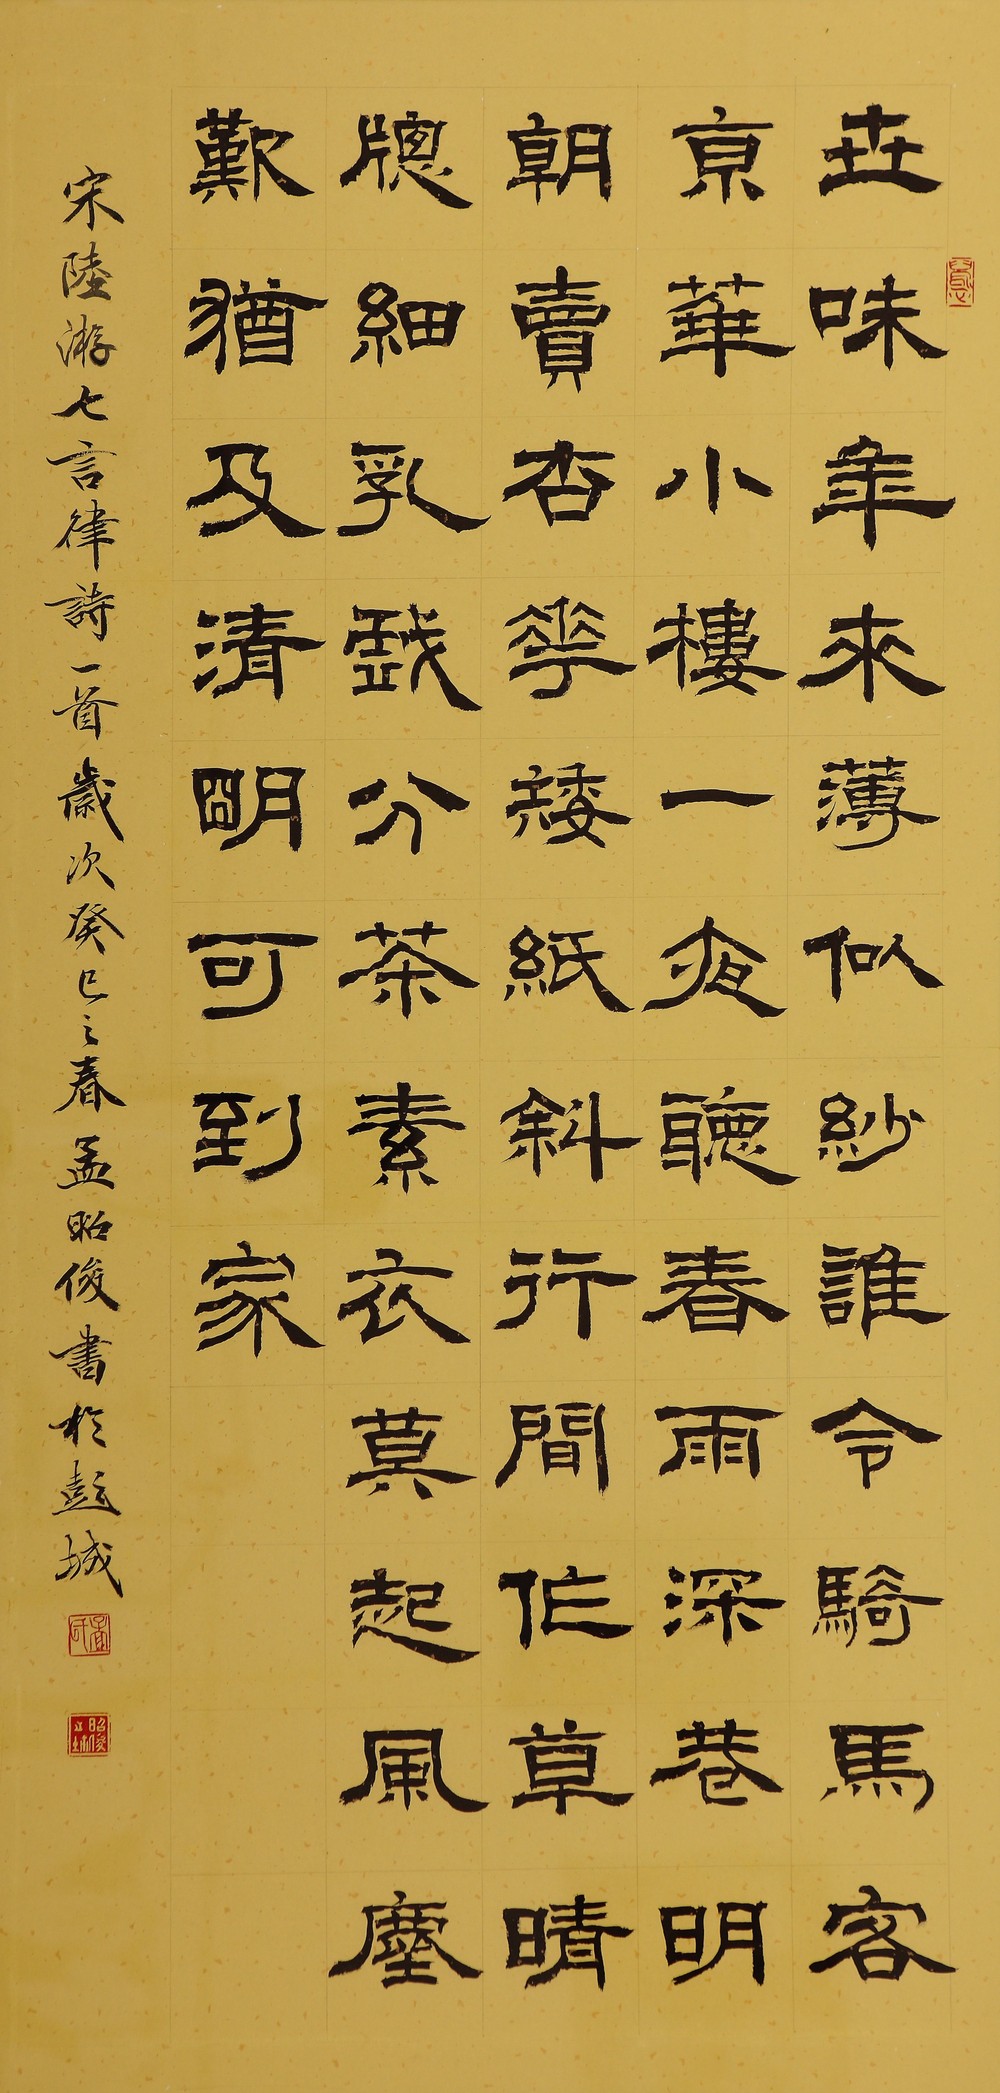 世味年來薄似紗誰令騎馬客
亰華小樓一夜聽春雨深巷明
朝賣杏花矮紙斜行間作草晴
牕細乳戲分茶素衣莫起風塵
歎猶及清朙可到家
宋陸游七言律詩一首歲次癸巳之春孟昭俊書於彭城
孟氏